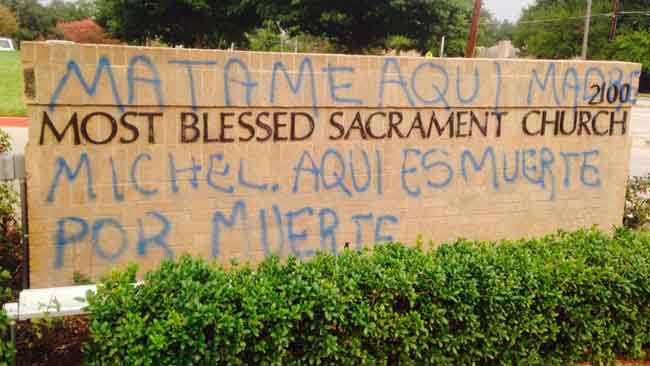 MATAME AQUI MADRE
2100
MOST BLESSED SACRAMENT CHURCH
MICHEL. AQUI ES MUERTE
POR MUERTE